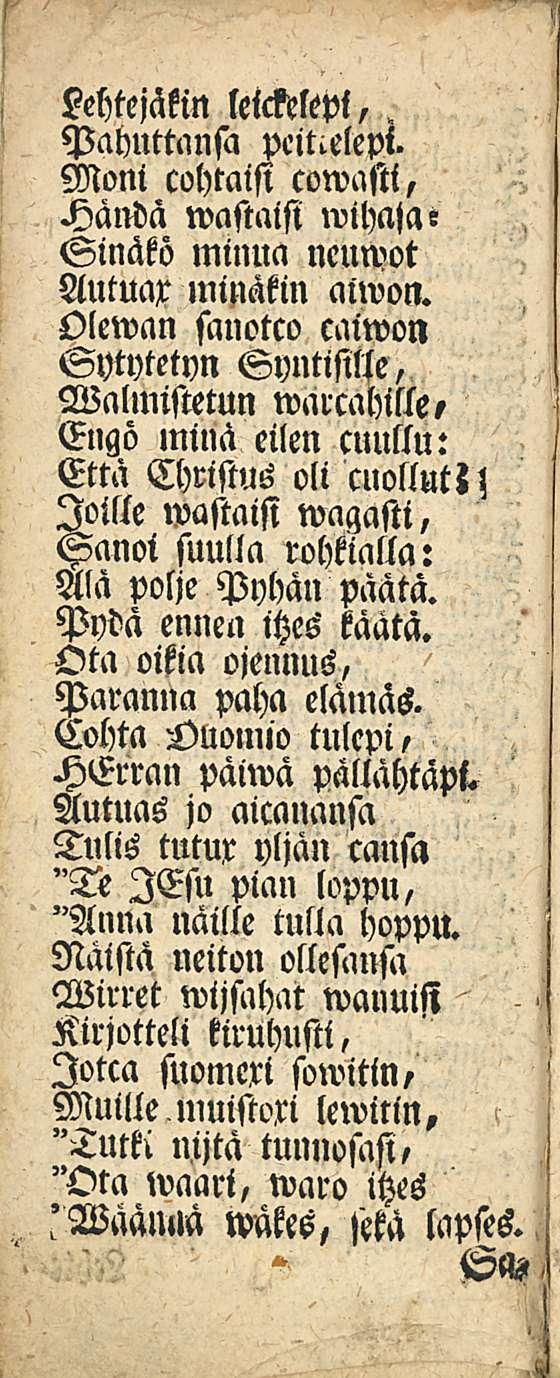 Lehtejäkin leickelepi,
Pahuttansa peittelepi.
Moni cohtaisi cowasti,
Händä wastaisi wihaja:
Sinäkö minua neuwot
Autuax minäkin aiwon.
Olewan sanotco caiwon
Sytytetyn Syntisille,
Walmistetun warcahille,
Engö minä eilen cuullu:
Että Christus oli cuollut??
Joille wastaisi wagasti,
Sanoi suulla rohkialla:
Älä polje Pyhän päätä.
Pydä ennen itzes käätä.
Ota oikia ojennus,
Paranna paha elämäs.
Cohta Duomio tulepi,
HErran päiwä pällähtäpi.
Autuas jo aicanansa
Tulis tutux yljän cansa
"Te JEsu pian loppu,
"Anna näille tulla hoppu.
Näistä neiton ollesansa
Wirret wijsahat wanuisi
Kirjotteli kiruhusti,
Jotca suomexi sowitin,
Muille muistoxi lewitin,
"Tutki nijtä tunnosasi,
"Ota waari, waro itzes
"Wäännä wäkes, sekä lapses.
Sa-